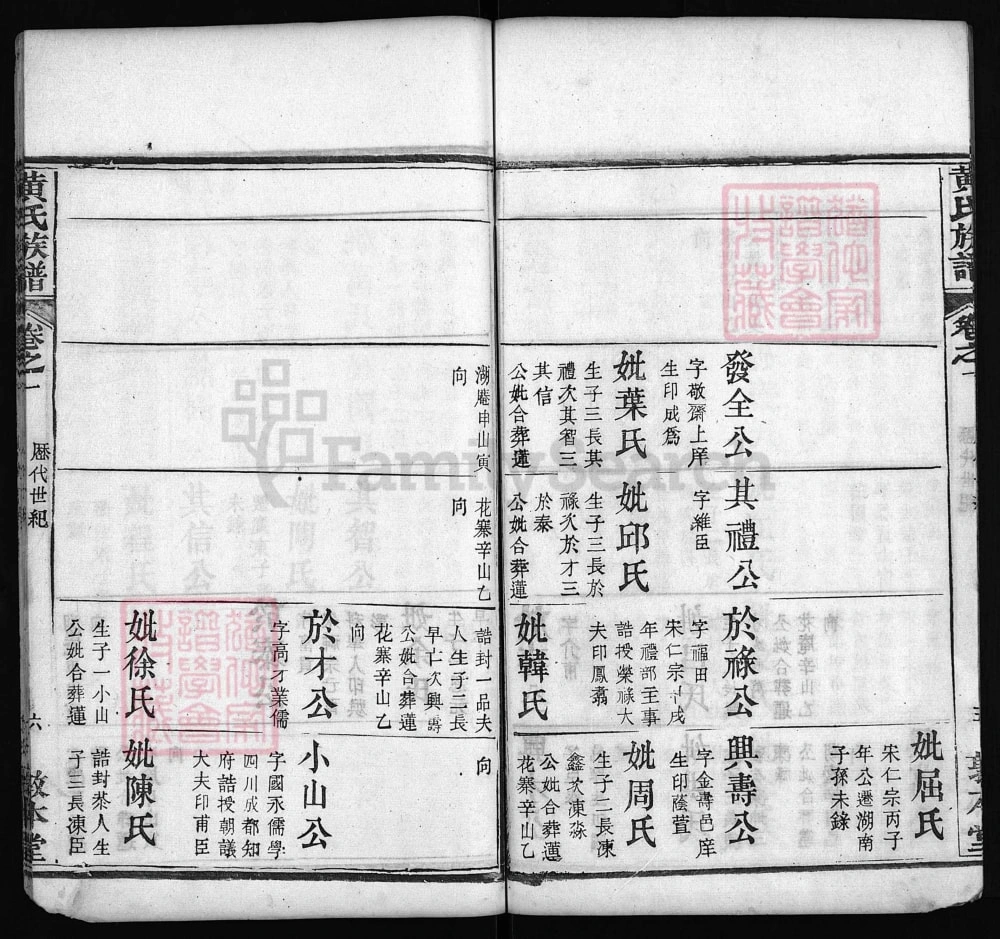 黃氏族譜
卷之一
發全公
字敬齋上庠
生印成爲
妣葉氏
生子三長其
禮次其智三
其信
公妣合葬蓮
湖庵申山寅
向
其禮公
字維臣
妣邱氏
生子三長於
祿次於才三
於泰
公妣合葬蓮
花寨辛山乙
向
於祿公
字福田
宋仁宗
戌
年禮部主事
誥授榮祿大
夫印鳳翥
妣韓氏
誥封一品夫
人生子二長
早亡次興壽
公妣合葬蓮
花寨辛山乙
向
於才公
字高才業儒
妣徐氏
生子一小山
公妣合葬蓮
妣屈氏
宋仁宗丙子
年公遷湖南
子孫未錄
興壽公
字金壽邑庠
生印蔭萱
妣周氏
生子二長凍
鑫次凍淼
公妣合葬蓮
花寨辛山乙
向
小山公
字國永儒學
四川成都知
府誥授朝議
大夫印甫臣
妣陳氏
誥封恭人生
子三長凍臣
黃氏族譜
卷之一
歷代世紀
六
敦本堂
FamilySearch